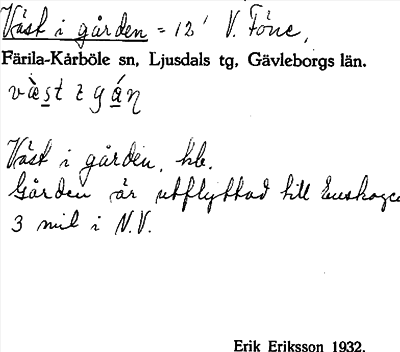 Väst i gården = 12' V. Föne,
Färila-Kårböle sn, Ljusdals tg, Gävleborgs län.
vä̀st i gá̊n
Väst i gården, hb.
Gården är utflyttad till Enskogen
3 mil i N.V.
Erik Eriksson 1932.